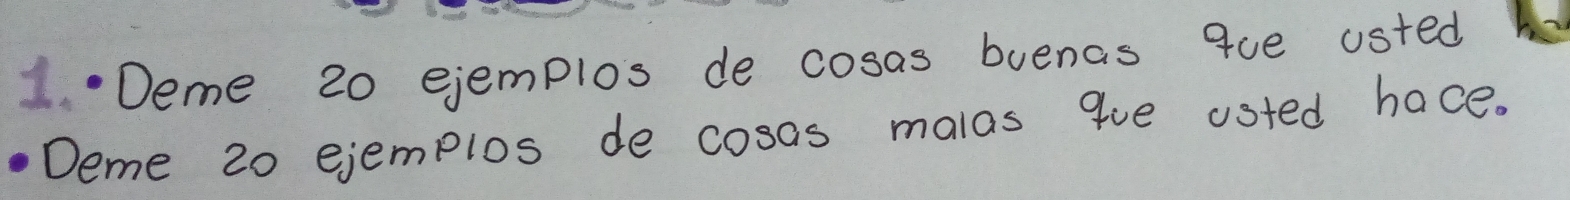 1. • Deme 20 ejemplos de cosas buenas que usted
• Deme 20 ejemplos de cosas malas que usted hace.